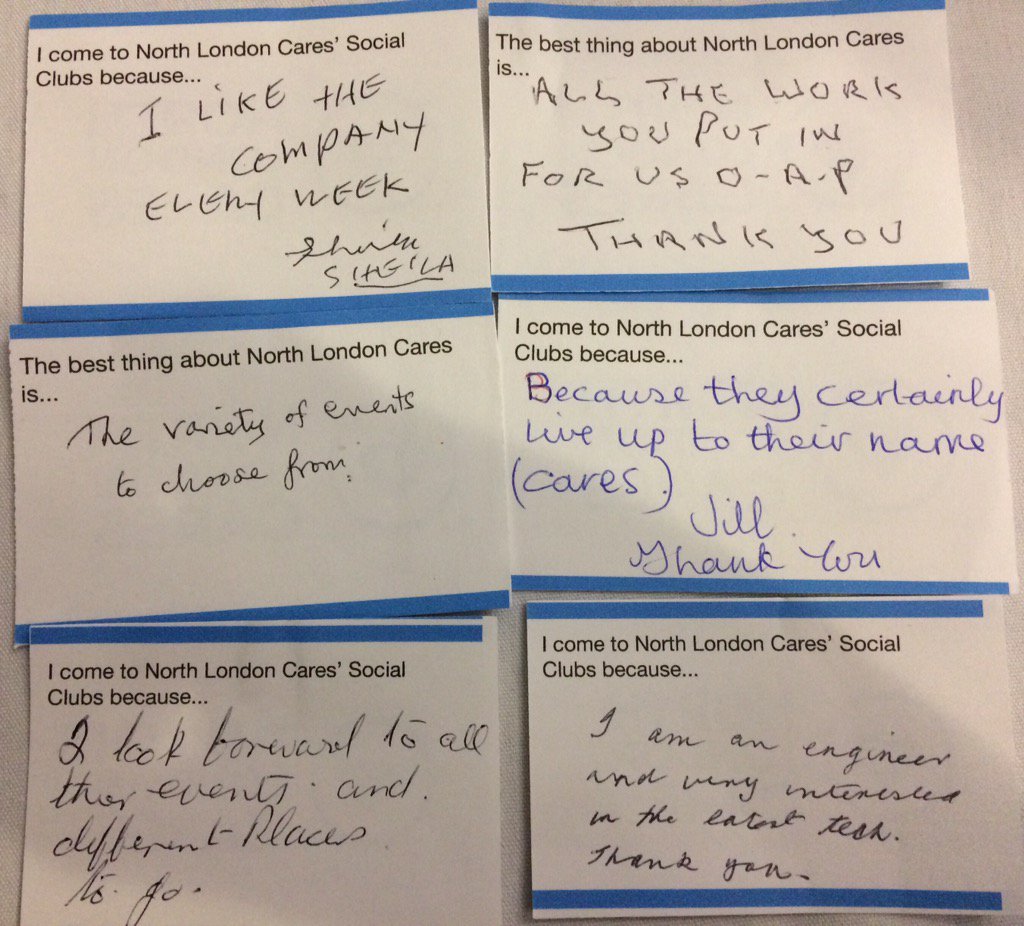 I come to North London Cares' Social
Clubs because...
I LIKE THE
COMPANY
EVERY WEEK
Sheila
SHEILA
The best thing about North London Cares
is...
ALL THE WORK
YOU PUT IN
FOR US O-A-P
THANK YOU
The best thing about North London Cares
is...
The variety of events
to choose from.
I come to North London Cares' Social
Clubs because...
Because they certainly
live up to their name
(cares.)
Jill.
Thank You
I come to North London Cares' Social
Clubs because...
I look forward to all
ther events. and.
different Places
to go.
I come to North London Cares' Social
Clubs because...
I am an engineer
and very interested
in the latest tech.
Thank you.